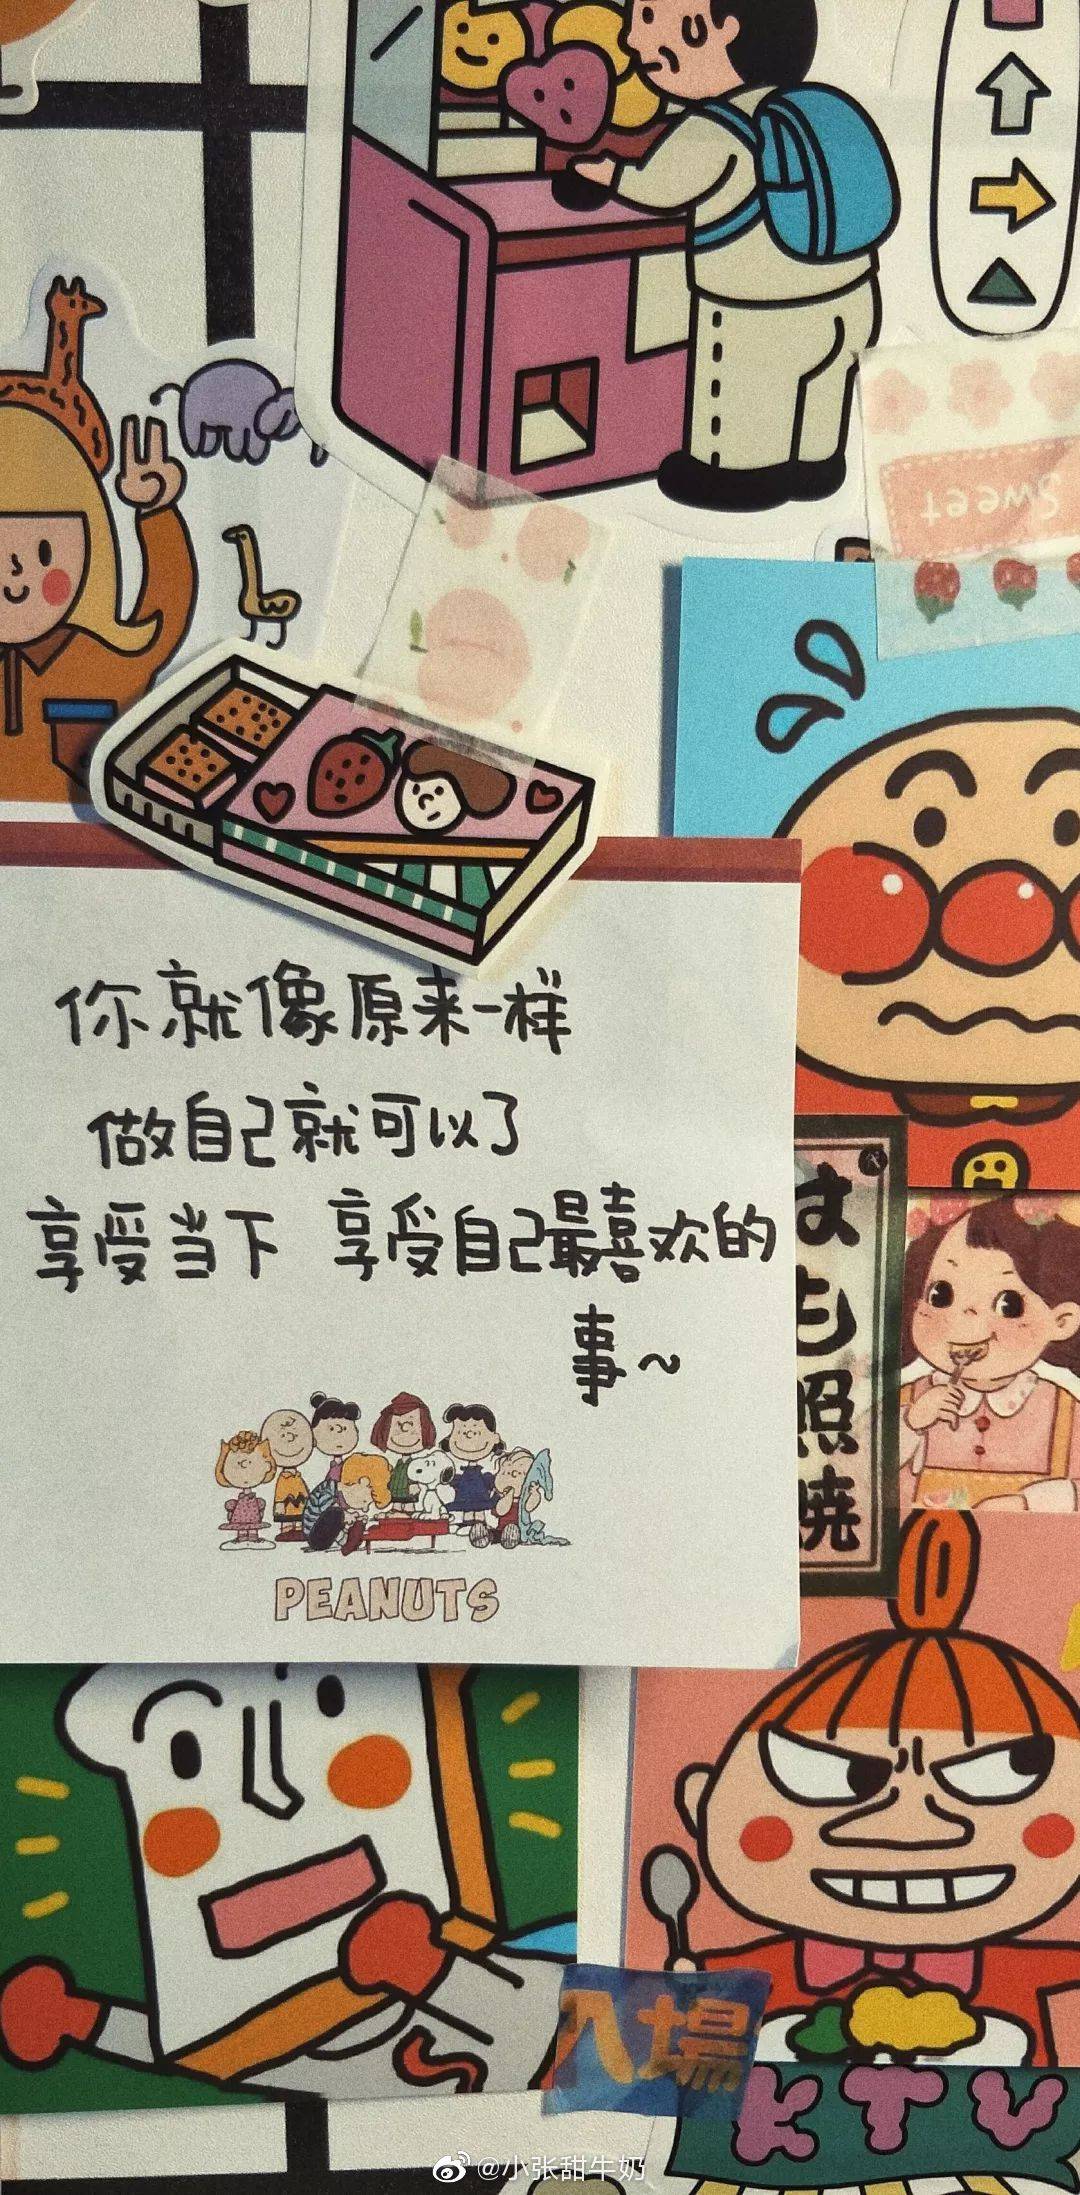 Sweet
你就像原来一样
做自己就可以了
享受当下 享受自己最喜欢的
事~
PEANUTS
照
焼
入場
KTV
@小张甜牛奶